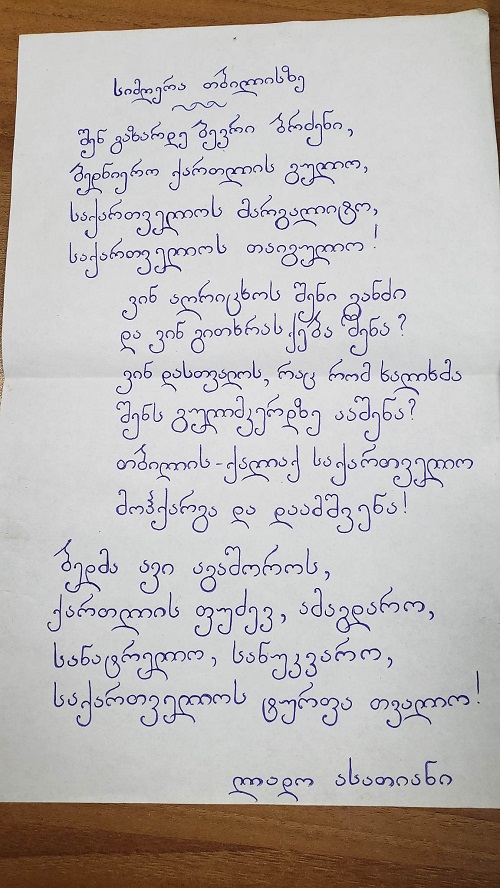 სიმღერა თბილისზე
შენ გაზარდე ბევრი ბრძენი,
ბედნიერო ქართლის გულო,
საქართველოს მარგალიტო,
საქართველოს თაიგულო!
ვინ აღრიცხოს შენი განძი
და ვინ გითხრას ქება შენა?
ვინ დასთვალოს, რაც რომ ხალხმა
შენს გულმკერდზე ააშენა?
თბილის-ქალაქ საქართველო
მოჰქარგა და დაამშვენა!
ბედმა ავი აგაშოროს,
ქართლის ფუძევ, ამაგდარო,
სანატრელო, სანუკვარო,
საქართველოს ტურფა თვალო!
ლადო ასათიანი